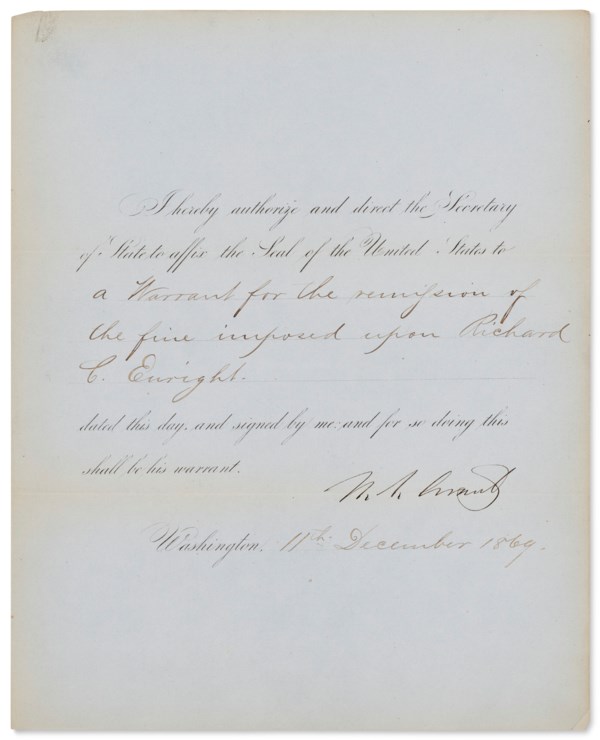 I hereby authorize and direct the Secretary
of State to affix the Seal of the United States to
a Warrant for the remission of
the fine imposed upon Richard
C. Enright.
dated this day, and signed by me: and for so doing this
shall be his warrant.
U. S. Grant
Washington, 11th December 1869.